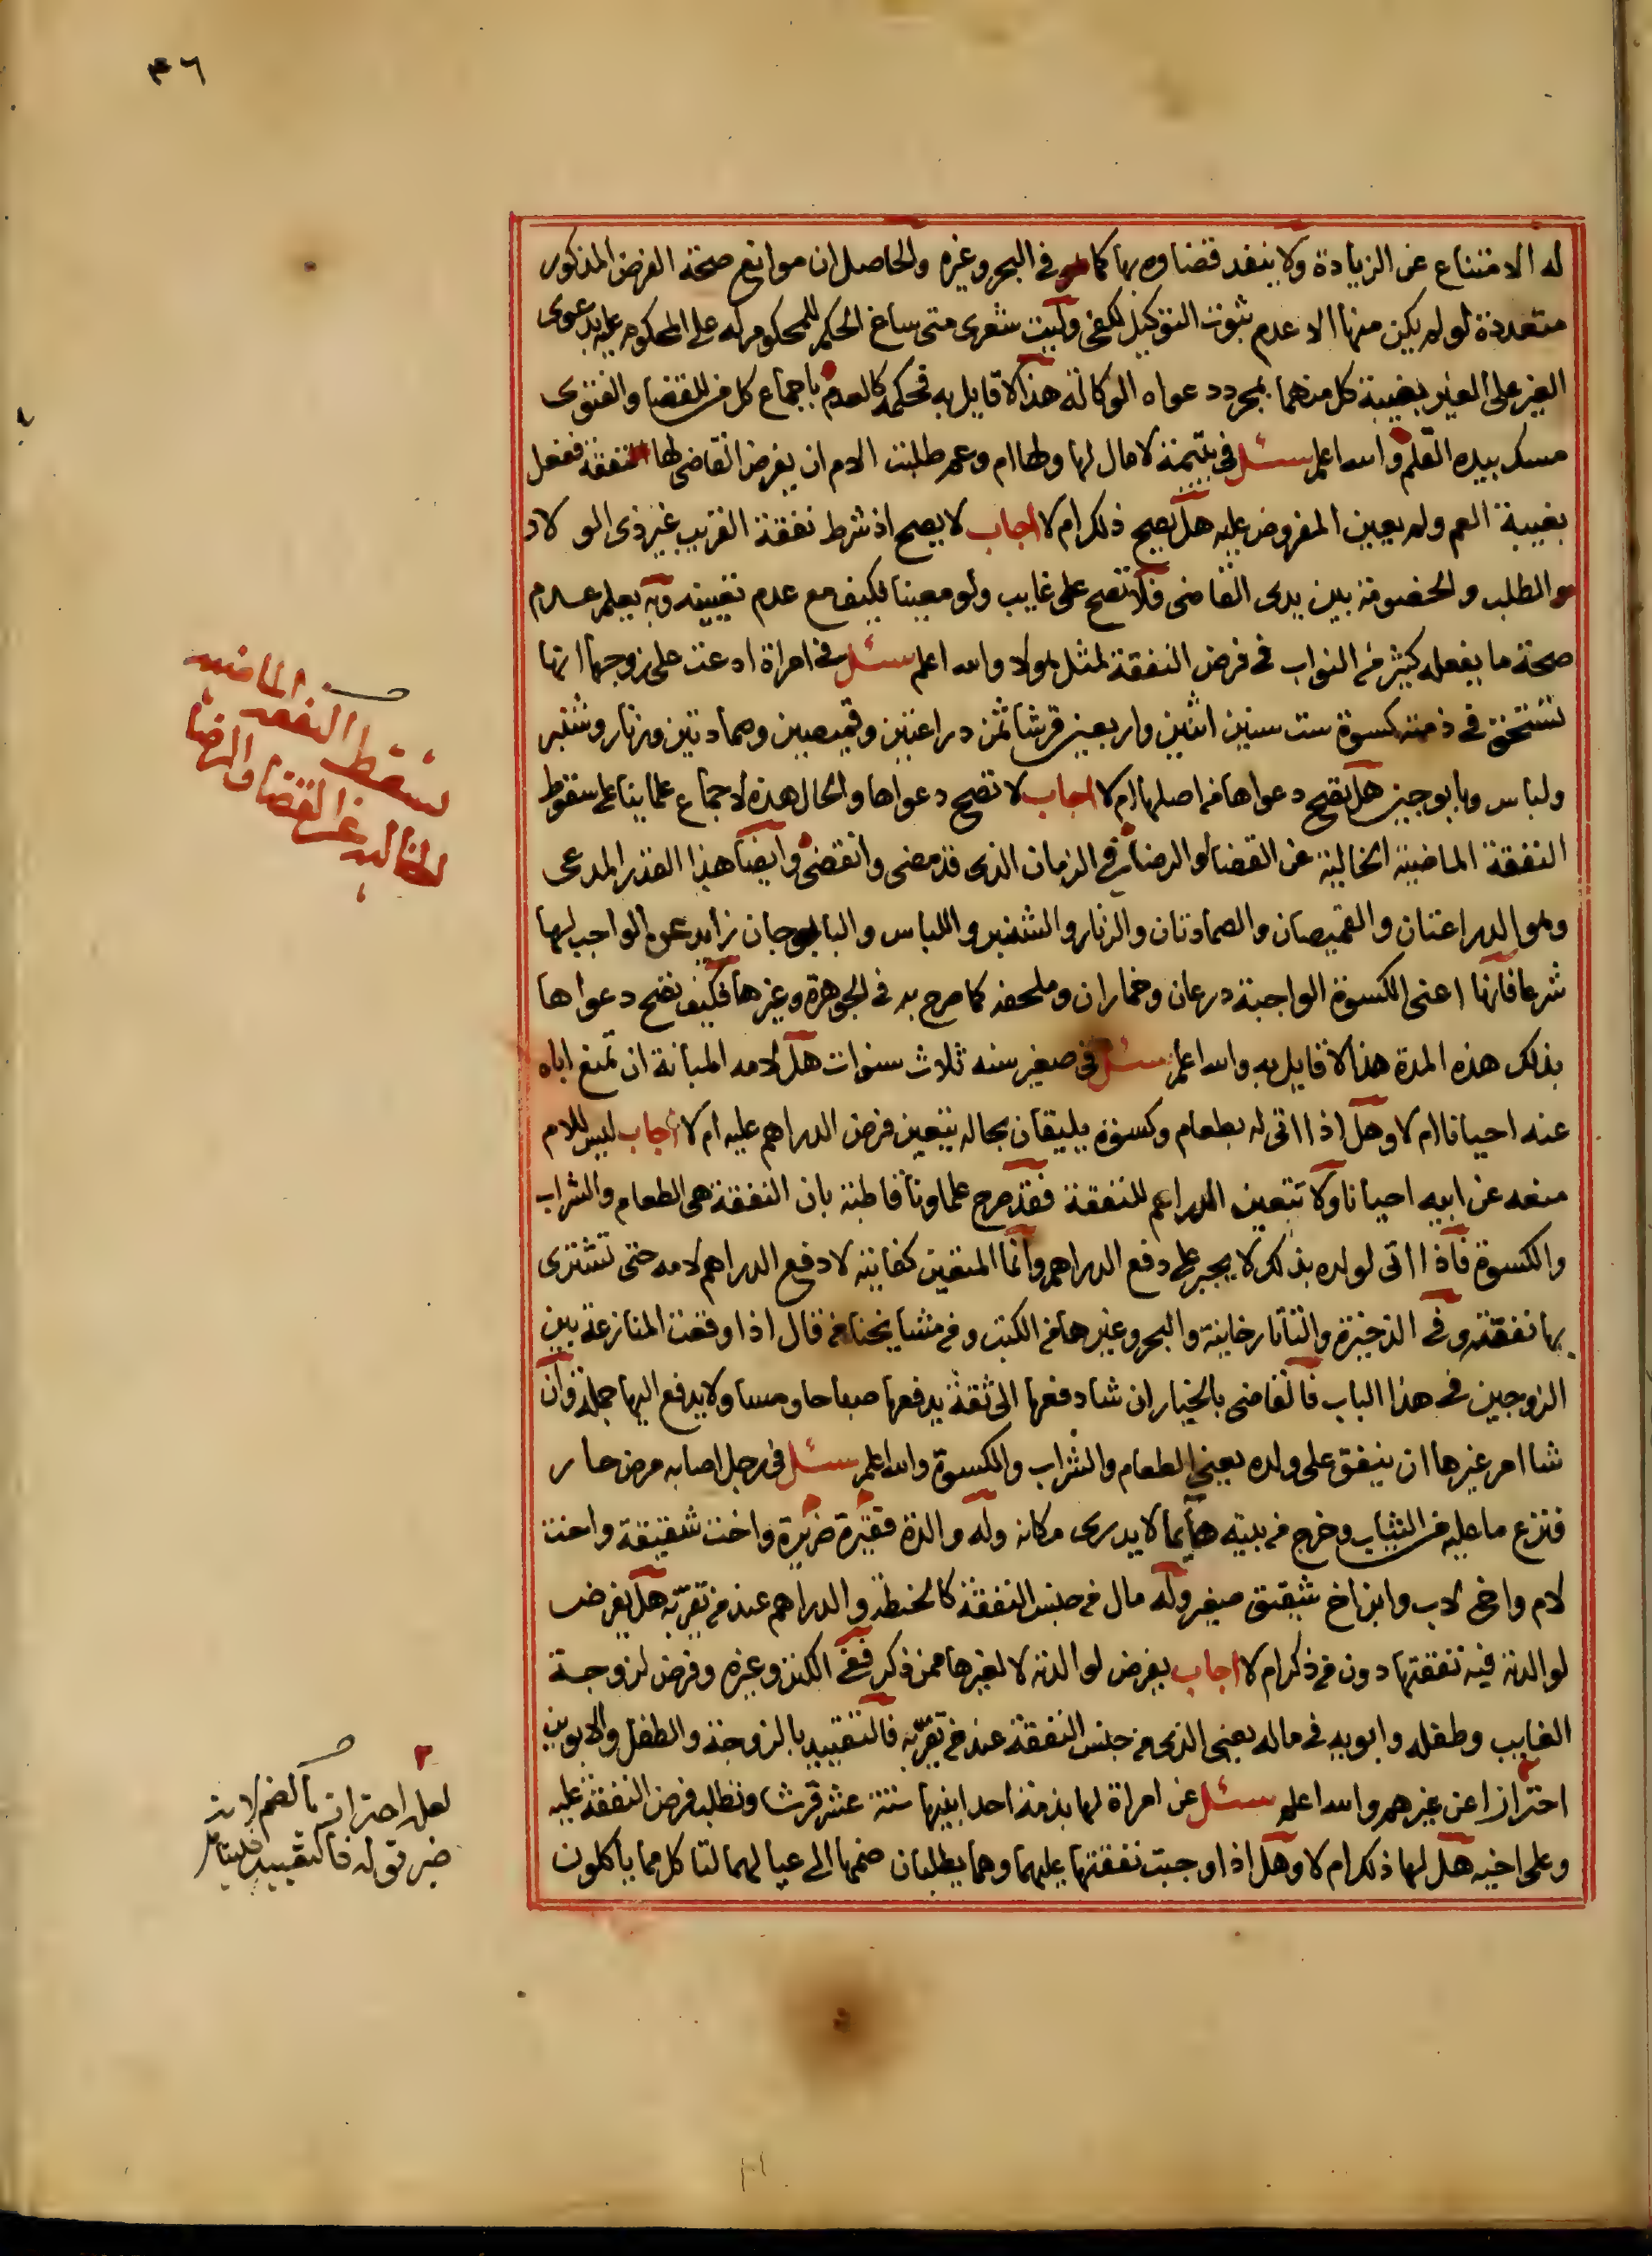 ٤٦
له الامتناع عن الزيادة ولا ينفد قضاوه بها كما هو في البحر وغيره والحاصل ان موانع صحة الفرض المذكور
متعددة لو لم يكن منها الا عدم ثبوت التوكيل لكفى وليت شعرى متى ساغ الحكم للمحكوم له على المحكوم عليه بدعوى
الغير على الغير بغيبة كل منهما بمجرد دعواه الوكالة هذا لا قايل به فحكمه كالعدم باجماع كل من للقضا والفتوى
مسك بيده القلم والله اعلم سئل في يتيمة لا مال لها ولها ام وعم طلبت الام ان يفرض القاضى لها النفقة ففعل
بغيبة العم ولم يعين المفروض عليه هل يصح ذلك ام لا اجاب لا يصح اذ شرط نفقة القريب غير ذى الولاد
هو الطلب والخصومة بين يدى القاضى فلا تصح على غايب ولو معينا فكيف مع عدم تعيينه وبه يعلم عدم
صحة ما يفعله كثير من النواب فى فرض النفقة لمثل هولاء والله اعلم سئل فى امراة ادعت على زوجها انها
تستحق فى ذمته كسوة ست سنين اثنين واربعين قرشا ثمن دراعتين وقميصين وصمادتين وزنار وشنبر
ولباس وبابوجين هل تصح دعواها من اصلها ام لا اجاب لا تصح دعواها والحال هذه لاجماع علماينا على سقوط
النفقة الماضية الخالية عن القضا والرضا فى الزمان الذى قد مضى وانقضى وايضا هذا القدر المدعى
وهو الدراعتان والقميصان والصمادتان والزنار والشنبر واللباس والبابوجان زايد عن الواجب لها
شرعا فانها اعنى الكسوة الواجبة درعان وخماران وملحفه كما صرح به فى الجوهرة وغيرها فكيف تصح دعواها
بذلك هذه المدة هذا لا قايل به والله اعلم سئل فى صغير سنه ثلاث سنوات هل لامه المبانة ان تمنع اباه
عنه احيانا ام لا وهل اذا اتى له بطعام وكسوة يليقان بحاله يتعين فرض الدراهم عليه ام لا اجاب ليس للام
منعه عن ابيه احيانا ولا تتعين الدراهم للنفقة فقد صرح علماونا قاطبة بان النفقة هى الطعام والشراب
والكسوة فاذا اتى لولده بذلك لا يجبر على دفع الدراهم وانما المتعين كفايته لا دفع الدراهم لامه حتى تشترى
بها نفقته وفى الذخيرة والتاتارخانية والبحر وغيرها من الكتب ومن مشايخنا من قال اذا وقعت المنازعة بين
الزوجين فى هذا الباب فالقاضى بالخيار ان شا دفعها الى ثقة يدفعها صباحا ومسا ولا يدفع اليها جملة وان
شا امر غيرها ان ينفق على ولده يعنى الطعام والشراب والكسوة والله اعلم سئل فى رجل اصابه مرض حار
فنزع ما عليه من الثياب وخرج من بيته هايما لا يدرى مكانه وله والدة فقيرة ضريرة واخت شقيقة واخت
لام واخ لاب وابن اخ شقيق صغير وله مال من جنس النفقة كالحنطة والدراهم عند من تقربه هل يفرض
لوالدته فيه نفقتها دون من ذكر ام لا اجاب يفرض لوالدته لا لغيرها ممن ذكر ففى الكنز وغيره وفرض لزوجة
الغايب وطفله وابويه فى ماله يعنى الذى من جنس النفقة عند من تقربه فالتقييد بالزوجة والطفل والابوين
احترازا عن غيرهم والله اعلم سئل عن امراة لها بذمة احد ابنيها ستة عشر قرشا وتطلب فرض النفقة عليه
وعلى اخيه هل لها ذلك ام لا وهل اذا وجبت نفقتها عليهما وهما يطلبان ضمها الى عيالهما لتاكل مما ياكلون
تسقط النفقه الماضيه
الخاليه عن القضا والرضا
لعل احتراز بالضم لانه
خبر قوله فالتقييد فليتامل